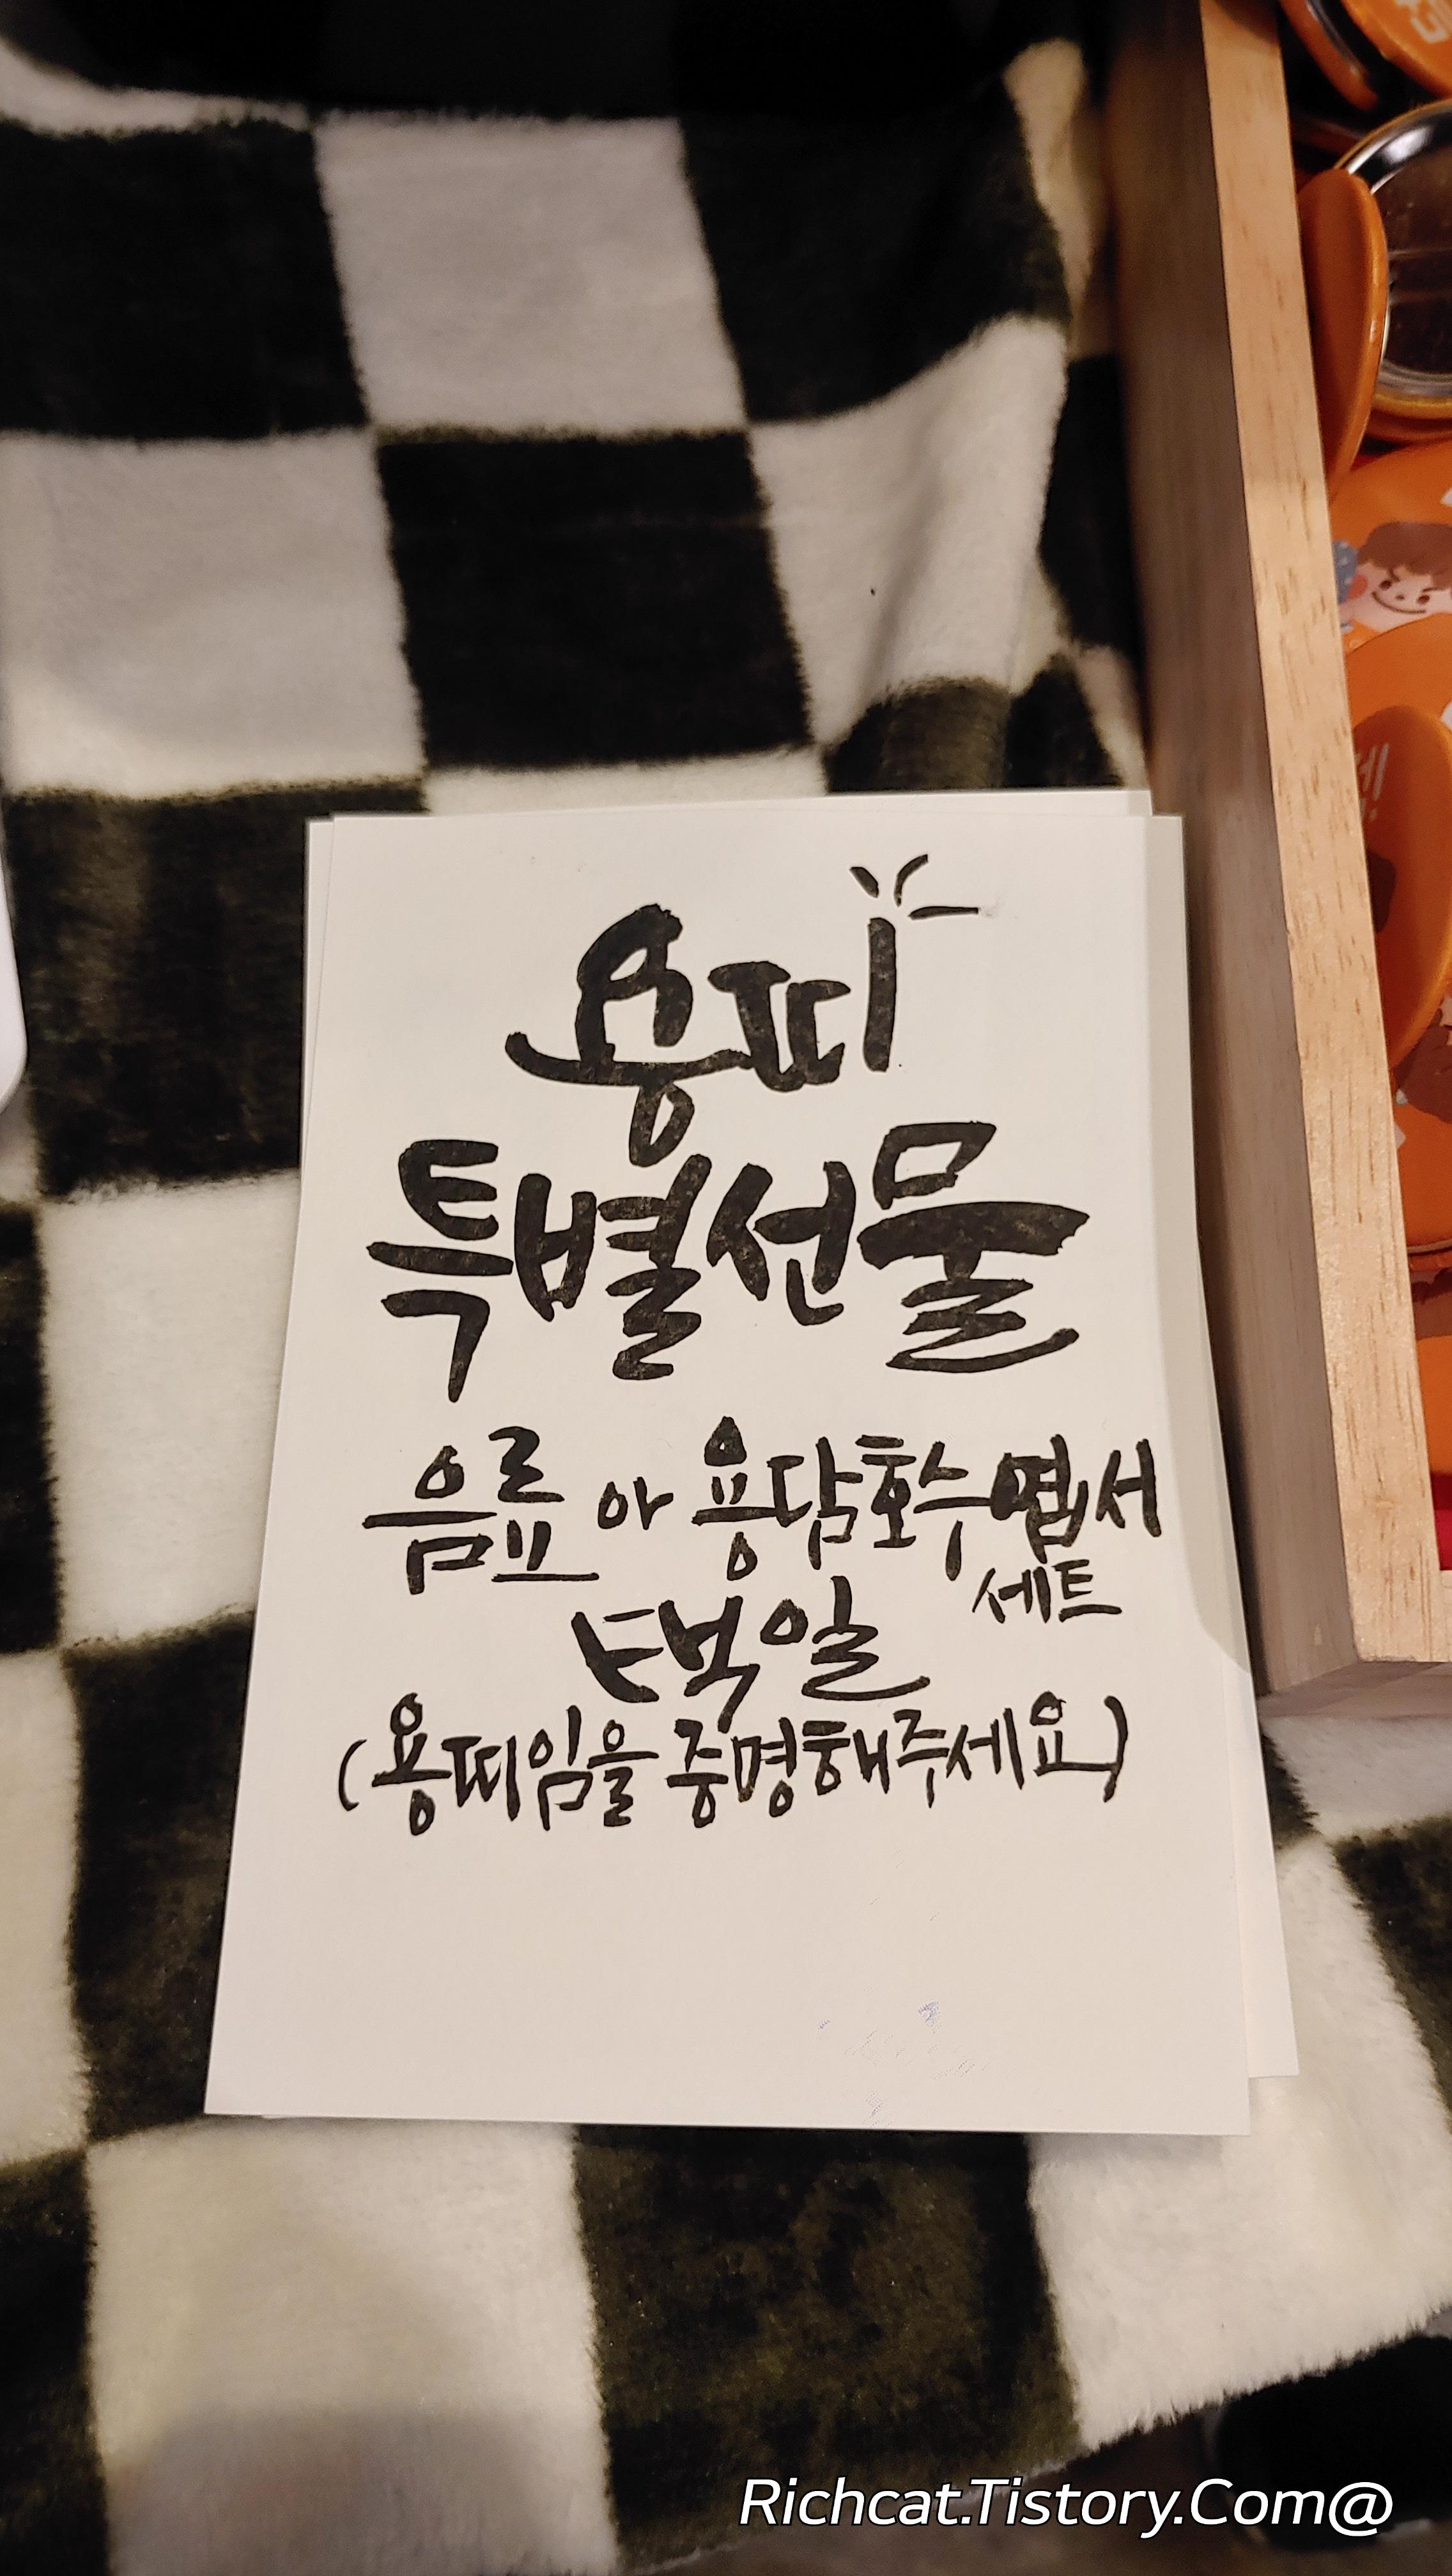 용띠
특별선물
음료 아 용담호수엽서
세트
택일
(용띠임을 증명해주세요)
Richcat.Tistory.Com@